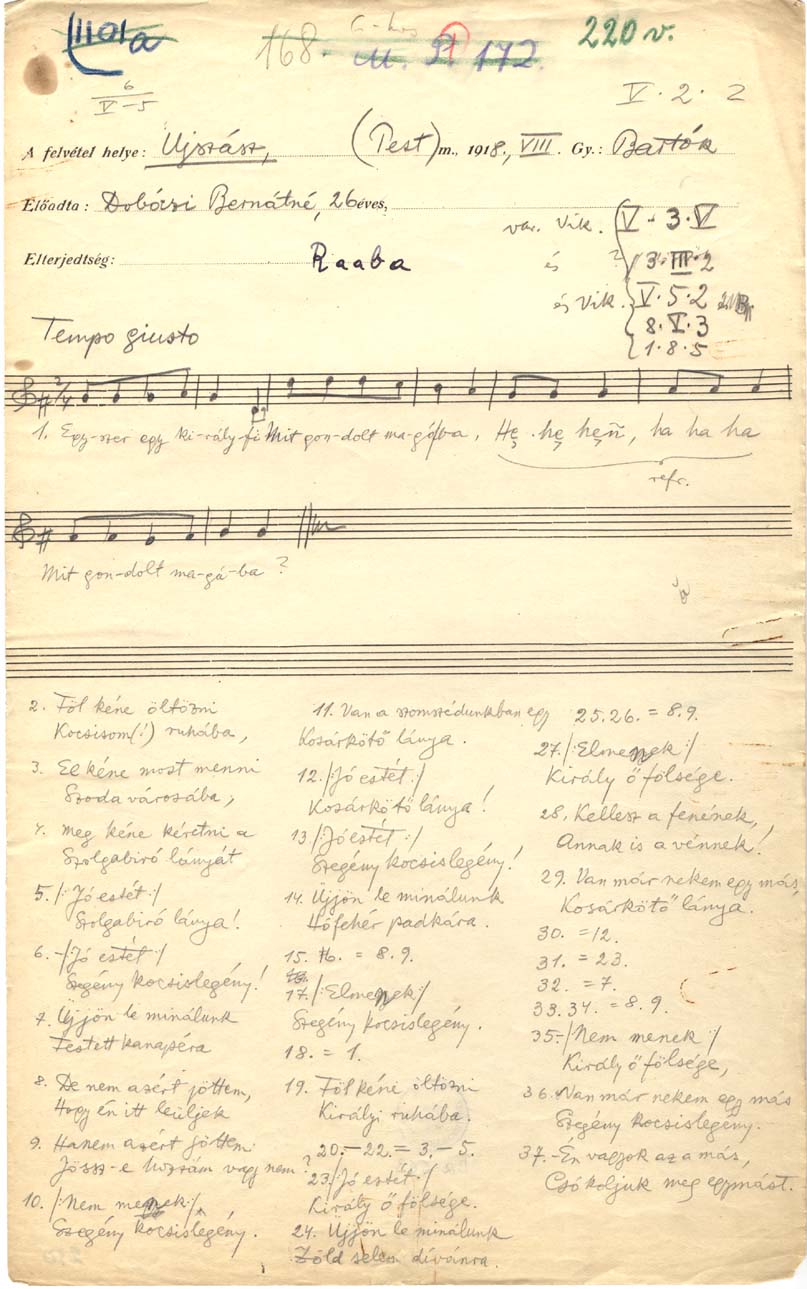 1101a
168.
M. F. 172.
220 v.
6
V-5
V. 2. 2
A felvétel helye: Ujszász, (Pest) m., 1918, VIII. Gy.: Bartók
Előadta: Dobóczi Bernátné, 26 éves,
Elterjedtség: Raaba
var. Vik. V - 3. V
és ? 3. III. 2
és Vik. V. 5. 2
8. V. 3
1. 8. 5
Tempo giusto
2/4
1. Egy-szer egy ki-rály-fi Mit gon-dolt ma-gá-ba, Hę hę hęñ, ha ha ha
refr.
Mit gon-dolt ma-gá-ba?
2. Föl kéne öltözni
Kocsisom(!) ruhába,
3. El kéne most menni
Szoda városába,
4. Meg kéne kéretni a
Szolgabiró lányát
5. /: Jó estét :/
Szolgabiró lánya!
6. - /: Jó estét :/
Szegény kocsislegény!
7. Üjjön le minálunk
Festett kanapéra
8. De nem azért jöttem,
Hogy én itt leüljek
9. Hanem azért jöttem:
Jössz-e hozzám vagy nem?
10. /: Nem menek :/
Szegény kocsislegény.
11. Van a szomszédunkban egy
Kosárkötő lánya.
12. /: Jó estét :/
Kosárkötő lánya!
13. /: Jó estét :/
Szegény kocsislegény!
14. Üjjön le minálunk
Hófehér padkára.
15. 16. = 8. 9.
17. /: Elmenek :/
Szegény kocsislegény.
18. = 1.
19. Föl kéni öltözni
Királyi ruhába.
20. - 22. = 3. - 5.
23. /: Jó estét :/
Király ő fölsége.
24. Üjjön le minálunk
Zöld selem dívánra.
25. 26. = 8. 9.
27. /: Elmenek :/
Király ő fölsége.
28. Kellesz a fenének,
Annak is a vénnek!
29. Van már nekem egy más,
Kosárkötő lánya.
30. = 12.
31. = 23.
32. = 7.
33. 34. = 8. 9.
35. - /: Nem menek :/
Király ő fölsége,
36. Van már nekem egy más
Szegény kocsislegény. -
37. - Én vagyok az a más,
Csókoljuk meg egymást.